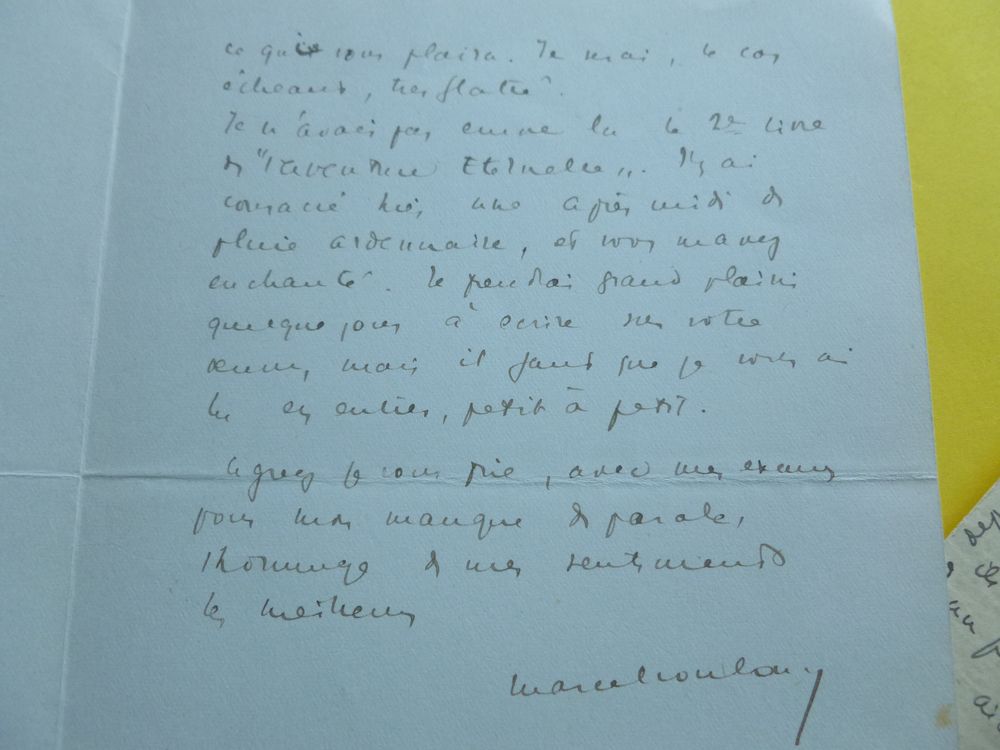 ce qui vous plaira. Je serai, le cas
échéant, très flatté.
Je n'avais pas encore lu le 2e Livre
de "l'Aventure Eternelle". J'y ai
consacré hier une après midi de
pluie ardennaise, et vous m'avez
enchanté. Je prendrai grand plaisir
quelque jour à écrire sur votre
œuvre, mais il faut que je vous ai
lu en entier, petit à petit.
Agréez je vous prie, avec mes excuses
pour mon manque de parole,
l'hommage de mes sentiments
les meilleurs
Marcel Coulon